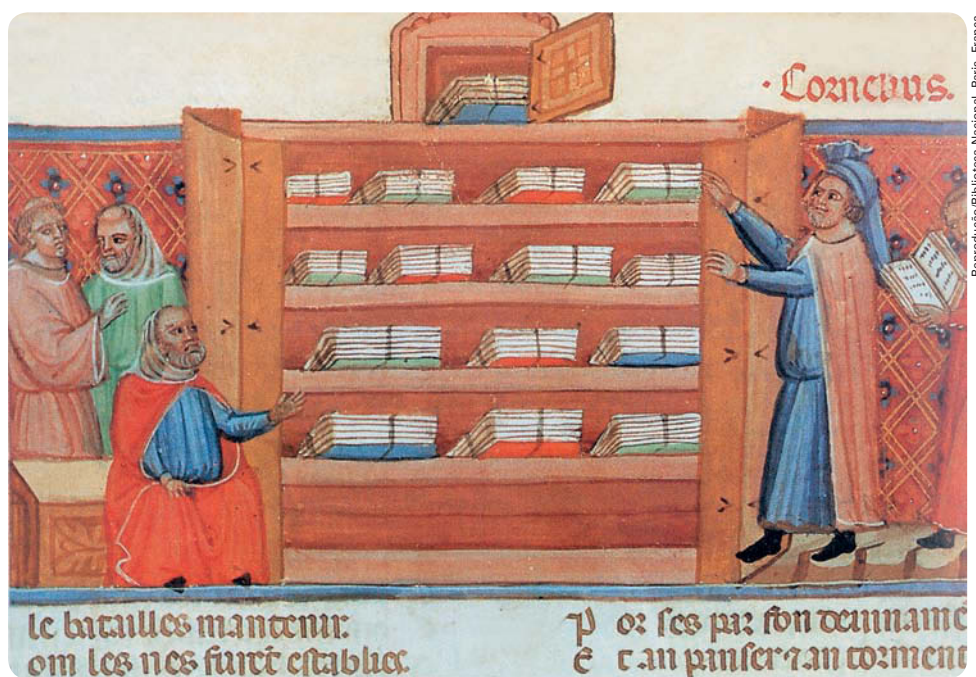 · Cornelius.
Reprodução/Biblioteca Nacional, Paris, França
le batailles mantenir.
om les nes furẽt establies.
P or ses par son deuiname
E t an panser ⁊ an torment